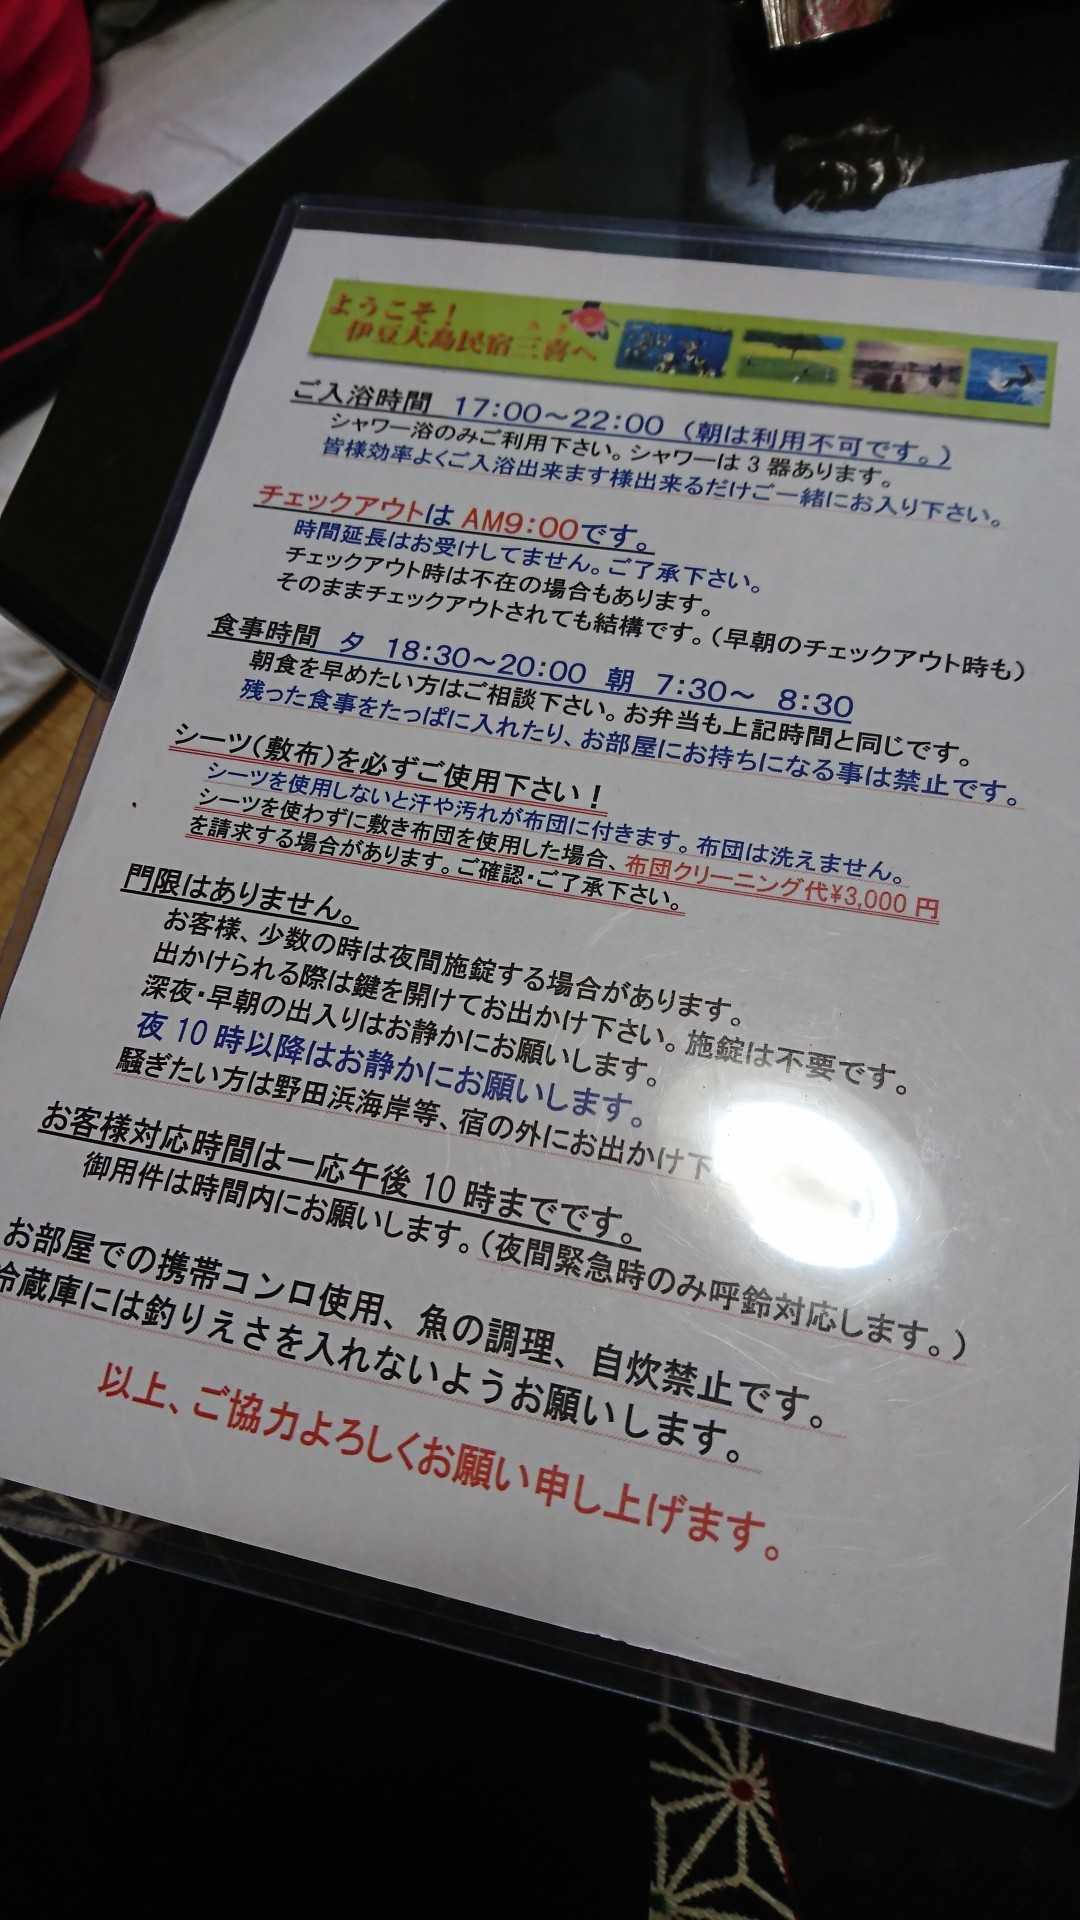 ようこそ！
伊豆大島民宿三喜へ
ご入浴時間 17:00～22:00 （朝は利用不可です。）
シャワー浴のみご利用下さい。シャワーは3器あります。
皆様効率よくご入浴出来ます様出来るだけご一緒にお入り下さい。
チェックアウトは AM9:00です。
時間延長はお受けしてません。ご了承下さい。
チェックアウト時は不在の場合もあります。
そのままチェックアウトされても結構です。（早朝のチェックアウト時も）
食事時間 夕 18:30～20:00 朝 7:30～ 8:30
朝食を早めたい方はご相談下さい。お弁当も上記時間と同じです。
残った食事をたっぱに入れたり、お部屋にお持ちになる事は禁止です。
シーツ（敷布）を必ずご使用下さい！
シーツを使用しないと汗や汚れが布団に付きます。布団は洗えません。
シーツを使わずに敷き布団を使用した場合、布団クリーニング代¥3,000円
を請求する場合があります。ご確認・ご了承下さい。
門限はありません。
お客様、少数の時は夜間施錠する場合があります。
出かけられる際は鍵を開けてお出かけ下さい。施錠は不要です。
深夜・早朝の出入りはお静かにお願いします。
夜10時以降はお静かにお願いします。
騒ぎたい方は野田浜海岸等、宿の外にお出かけ下
お客様対応時間は一応午後10時までです。
御用件は時間内にお願いします。（夜間緊急時のみ呼鈴対応します。）
お部屋での携帯コンロ使用、魚の調理、自炊禁止です。
冷蔵庫には釣りえさを入れないようお願いします。
以上、ご協力よろしくお願い申し上げます。